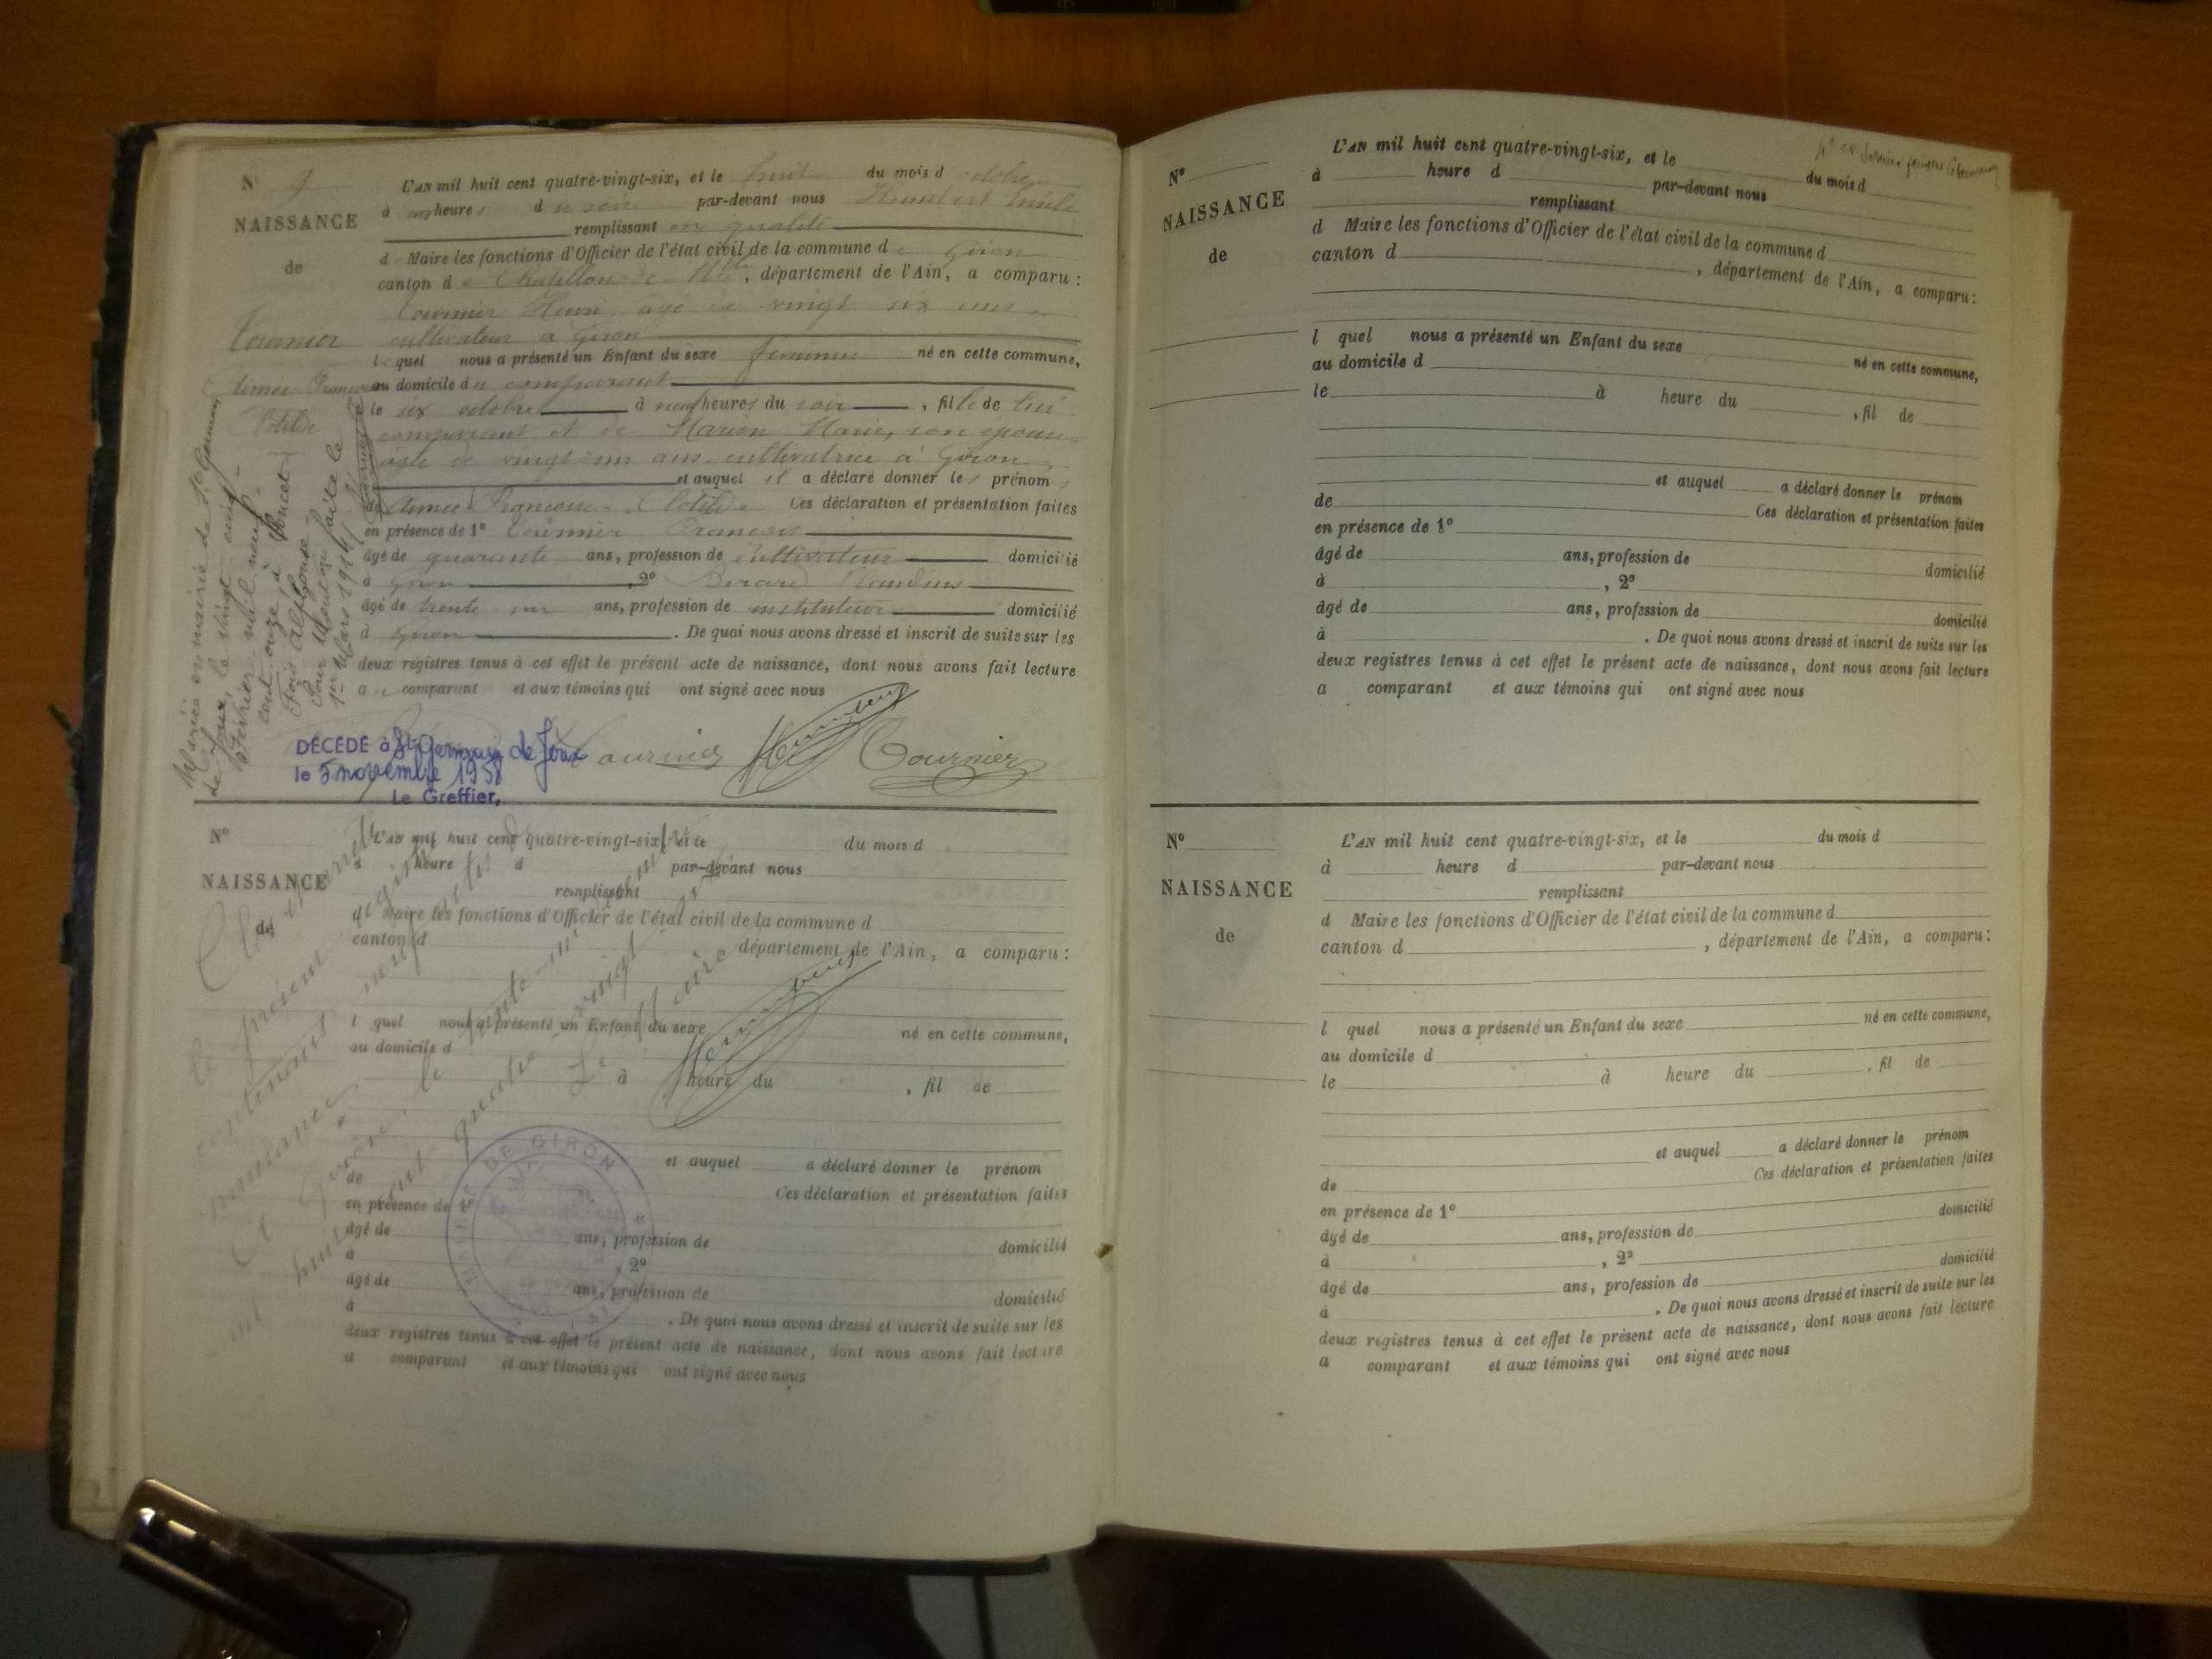 N° 9
NAISSANCE
de
Tournier
Aimée Françoise
Clotilde
L'AN mil huit cent quatre-vingt-six, et le huit du mois d'octobre
à heures du soir par-devant nous Humbert Emile
remplissant en qualité
de Maire les fonctions d'Officier de l'état civil de la commune de Giron
canton de Chatillon de Mlle, département de l'Ain, a comparu :
Tournier Henri, âgé de vingt six ans
cultivateur à Giron
lequel nous a présenté un Enfant du sexe féminin né en cette commune,
au domicile du comparant
le six octobre à neuf heures du soir, fille de lui
comparant et de Marion Marie, son épouse
âgée de vingt un ans cultivatrice à Giron
et auquel il a déclaré donner les prénoms
de Aimée Françoise Clotilde Ces déclaration et présentation faites
en présence de 1° Tournier François
âgé de quarante ans, profession de cultivateur domicilié
à Giron, 2° Berard Claudius
âgé de trente un ans, profession de instituteur domicilié
à Giron. De quoi nous avons dressé et inscrit de suite sur les
deux registres tenus à cet effet le présent acte de naissance, dont nous avons fait lecture
au comparant et aux témoins qui ont signé avec nous
Tournier Humbert Tournier
Mariée en mairie de St Germain
de Joux, le vingt cinq
février mil neuf
cent onze à Poncet
Alphonse
Pour Mention faite le
1er Mars 1911
DÉCÉDÉ à St Germain de Joux
le 5 novembre 1958
Le Greffier,
N°
NAISSANCE
de
L'AN mil huit cent quatre-vingt-six, et le du mois d
à heure d par-devant nous
remplissant
d Maire les fonctions d'Officier de l'état civil de la commune d
canton d département de l'Ain, a comparu :
l quel nous a présenté un Enfant du sexe né en cette commune,
au domicile d
à heure du , fil de
et auquel a déclaré donner le prénom
de Ces déclaration et présentation faites
en présence de 1°
âgé de ans, profession de domicilié
à , 2°
âgé de ans, profession de domicilié
à . De quoi nous avons dressé et inscrit de suite sur les
deux registres tenus à cet effet le présent acte de naissance, dont nous avons fait lecture
a comparant et aux témoins qui ont signé avec nous
Clos et arrêté
le présent registre
contenant neuf actes de
naissance
Giron, le trente un
huit cent quatre vingt
Le Maire
Humbert
MAIRIE DE GIRON
N°
NAISSANCE
de
L'AN mil huit cent quatre-vingt-six, et le du mois d
à heure d par-devant nous
remplissant
d Maire les fonctions d'Officier de l'état civil de la commune d
canton d , département de l'Ain, a comparu :
l quel nous a présenté un Enfant du sexe né en cette commune,
au domicile d
le à heure du , fil de
et auquel a déclaré donner le prénom
de Ces déclaration et présentation faites
en présence de 1°
âgé de ans, profession de domicilié
à , 2°
âgé de ans, profession de domicilié
à . De quoi nous avons dressé et inscrit de suite sur les
deux registres tenus à cet effet le présent acte de naissance, dont nous avons fait lecture
a comparant et aux témoins qui ont signé avec nous
N°
NAISSANCE
de
L'AN mil huit cent quatre-vingt-six, et le du mois d
à heure d par-devant nous
remplissant
d Maire les fonctions d'Officier de l'état civil de la commune d
canton d , département de l'Ain, a comparu :
l quel nous a présenté un Enfant du sexe né en cette commune,
au domicile d
le à heure du , fil de
et auquel a déclaré donner le prénom
de Ces déclaration et présentation faites
en présence de 1°
âgé de ans, profession de domicilié
à , 2°
âgé de ans, profession de domicilié
à . De quoi nous avons dressé et inscrit de suite sur les
deux registres tenus à cet effet le présent acte de naissance, dont nous avons fait lecture
a comparant et aux témoins qui ont signé avec nous